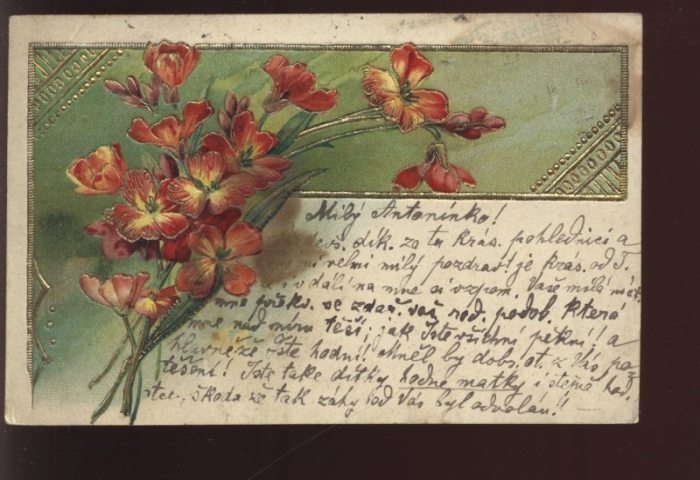 Milý Antonínko!
dík. za tu krás. pohlednici a
velmi milý pozdrav! je krás. od T.
i v dáli na mne si vzpom. Vaše milá
mne ve zdař. vaš. rod. podob. která
mne nad míru těší, jak jste všichni pěkní! a
hlavně že jste hodní! měl by dobr. ot. z Vás po-
těšení! Jste také dítky hodné matky i
škoda že tak záhy od Vás byl odvolán!!